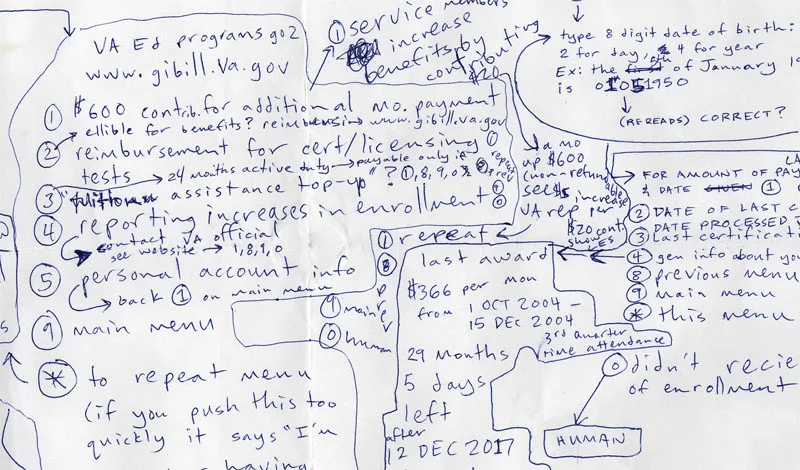 VA Ed programs go 2
www.gibill.va.gov
① $600 contrib. for additional mo. payment
ellible for benefits? reimbursion www.gibill.va.gov
② reimbursement for cert/licensing
tests → 24 months active duty → payable only if
③ assistance top-up"? ①,8,9,0
④ reporting increases in enrollment
contact VA official
see website → 1,8,9,0
⑤ personal account info
back ① on main menu
⑨ main menu
✱ to repeat menu
(if you push this too
quickly it says "I'm
having
① service members
increase
benefits by
contributing
$20
type 8 digit date of birth:
2 for day, 4 for year
Ex: the of January 19
is
(REREADS) CORRECT?
a mo
up $600
(non-refundable
see $ increase
VA rep per
$20 cont
shows ES
① repeat
⑧
⑨ main
⓪ human
last award
$366 per mon
from 1 OCT 2004 –
15 DEC 2004
3rd quarter
time attendance
29 months
5 days
left
after
12 DEC 2017
FOR AMOUNT OF PAY
& DATE GIVEN ①
② DATE OF LAST C
DATE PROCESSED
③ Last certificati
④ gen info about you
⑧ previous menu
⑨ main menu
✱ this menu
⓪ didn't recie
of enrollment
HUMAN